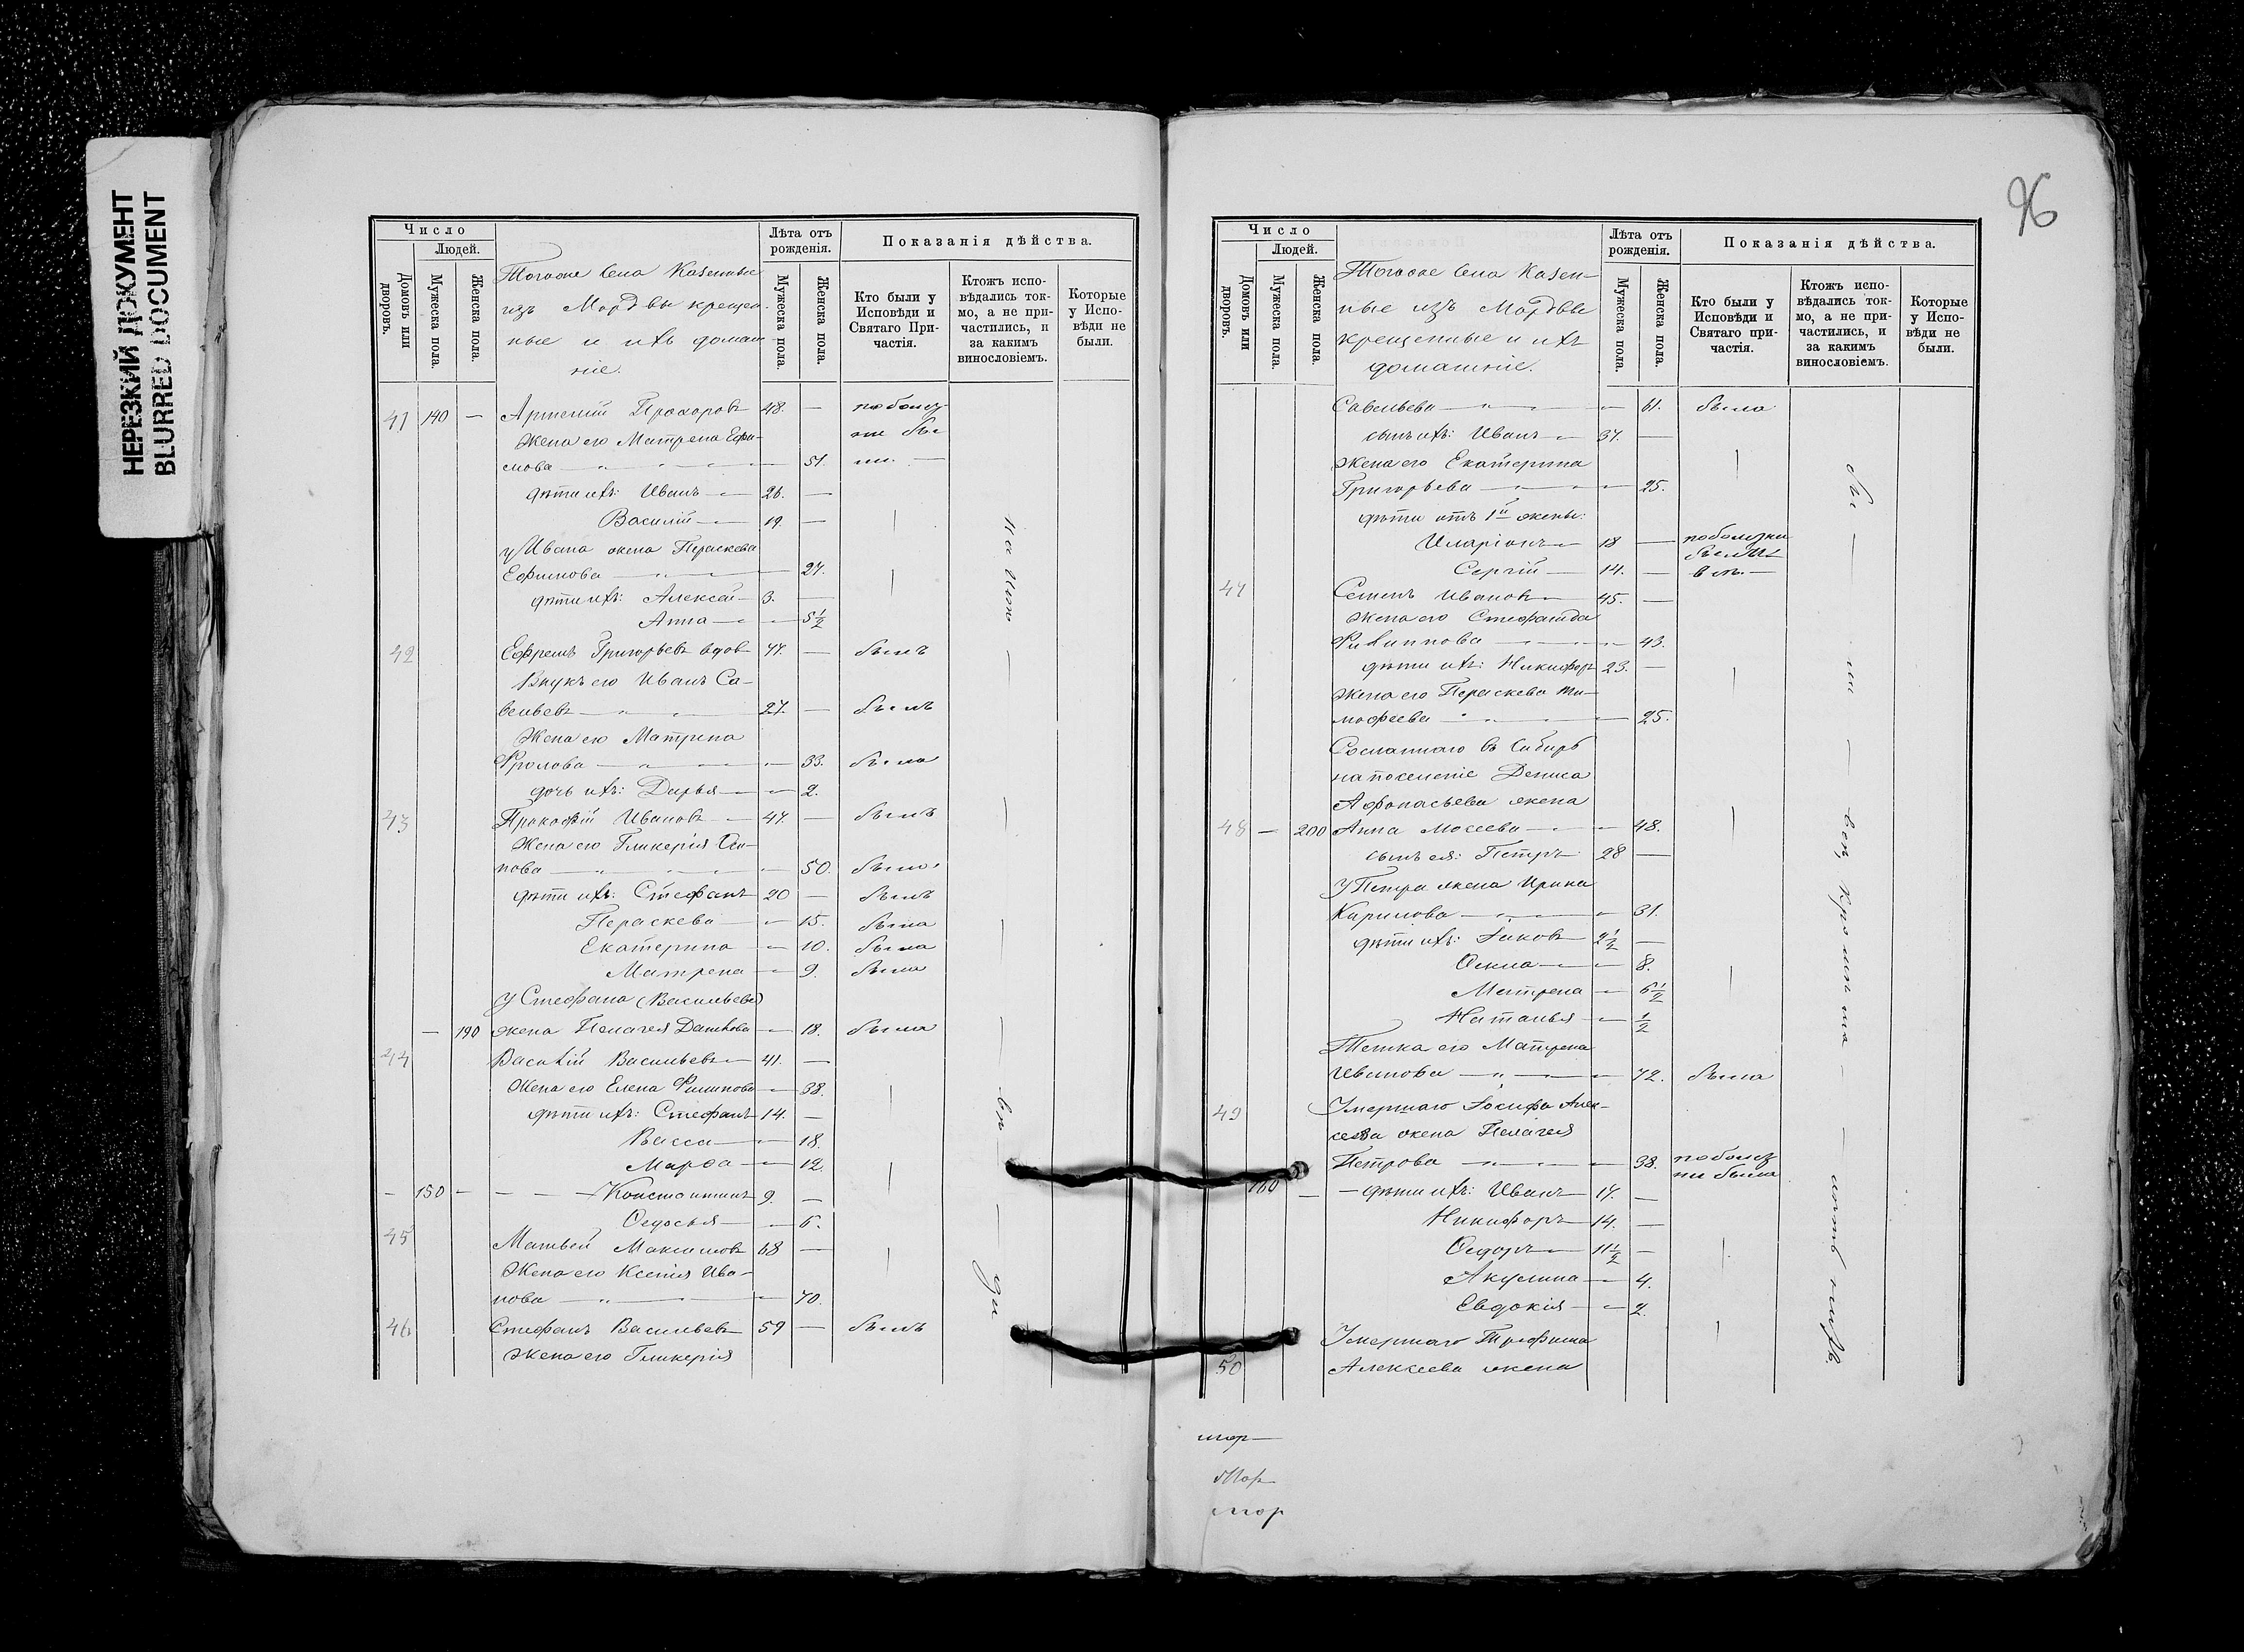 НЕРЕЗКИЙ ДОКУМЕНТ
BLURRED DOCUMENT
Число
Людей.
Домовъ или дворовъ.
Мужеска пола.
Женска пола.
Тогоже села Казенные
изъ Мордвы крещен-
ные и ихъ домаш-
ніе.
Лѣта отъ рожденія.
Мужеска пола.
Женска пола.
Показанія дѣйства.
Кто были у Исповѣди и Святаго Причастія.
Ктожъ исповѣдались токмо, а не причастились, и за какимъ винословіемъ.
Которые у Исповѣди не были.
41 140 — Арсеній Прохоровъ 48. — по болез
Жена его Матрена Ефи- ни бы
мова 51. ли. —
дѣти ихъ: Иванъ 26. —
Василій 19. —
у Ивана жена Параскева
Ефимова 27.
дѣти ихъ: Алексей 3. —
Анна 5 1/2
42 Ефремъ Григорьевъ вдов 77. — былъ
Внукъ его Иванъ Са-
вельевъ 27. — былъ
Жена его Матрена
Фролова 33. была
дочь ихъ: Дарья 2.
43 Прокофій Ивановъ 47. — былъ
Жена его Гликерія Оси-
пова 50. была
дѣти ихъ: Стефанъ 20 — былъ
Параскева 15. была
Екатерина 10. была
Матрена 9. была
у Стефана (Васильева)
— 190 жена Пелагея 18. была
44 Василій Васильевъ 41. —
Жена его Елена Филипова 38.
дѣти ихъ: Стефанъ 14. —
Васса 18.
Марѳа 12.
— 150 — Константинъ 9. —
Ѳедосья 6.
45 Матвей Максимовъ 68 —
Жена его Ксенія Ива-
нова 70.
46 Стефанъ Васильевъ 59 — былъ
Жена его Гликерія
96
Число
Людей.
Домовъ или дворовъ.
Мужеска пола.
Женска пола.
Тогоже села Казен-
ные изъ Мордвы
крещенные и ихъ
домашніе.
Лѣта отъ рожденія.
Мужеска пола.
Женска пола.
Показанія дѣйства.
Кто были у Исповѣди и Святаго причастія.
Ктожъ исповѣдались токмо, а не причастились, и за какимъ винословіемъ.
Которые у Исповѣди не были.
Савельева 61. была
сынъ ихъ: Иванъ 37. —
Жена его Екатерина
Григорьева 25.
дѣти отъ 1й жены:
Иларіонъ 18 — по болезни
Сергій 14. — были
47 Семенъ Ивановъ 45. —
Жена его Стефанида
Филиппова 43.
дѣти ихъ: Никифоръ 23. —
Жена его Параскева Ти-
мофеева 25.
Сосланнаго въ Сибирь
на поселеніе Дениса
Афонасьева жена
48 — 200 Анна Мосеева 48.
сынъ ея: Петръ 28 —
У Петра жена Ирина
Карпова 31.
дѣти ихъ: Іаковъ 2 1/2 —
Ѳекла 8.
Матрена 6 1/2
Наталья 1/2
Тетка его Матрена
Иванова 72. была
49 Умершаго Іосифа Алек-
сеева жена Пелагея
Петрова 38. по болез
ни была
160 — дѣти ихъ: Иванъ 17. —
Никифоръ 14. —
Ѳедоръ 11 1/2 —
Акулина 4.
Евдокія 2.
Умершаго Трофима
50 Алексеева жена
мор
мор
мор